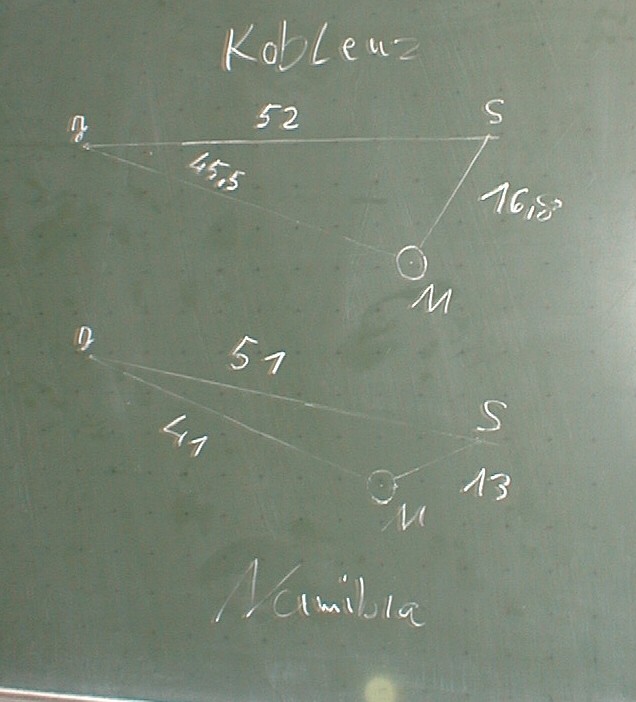 Koblenz
52
S
45,5
16,8
M
51
S
41
13
M
Namibia